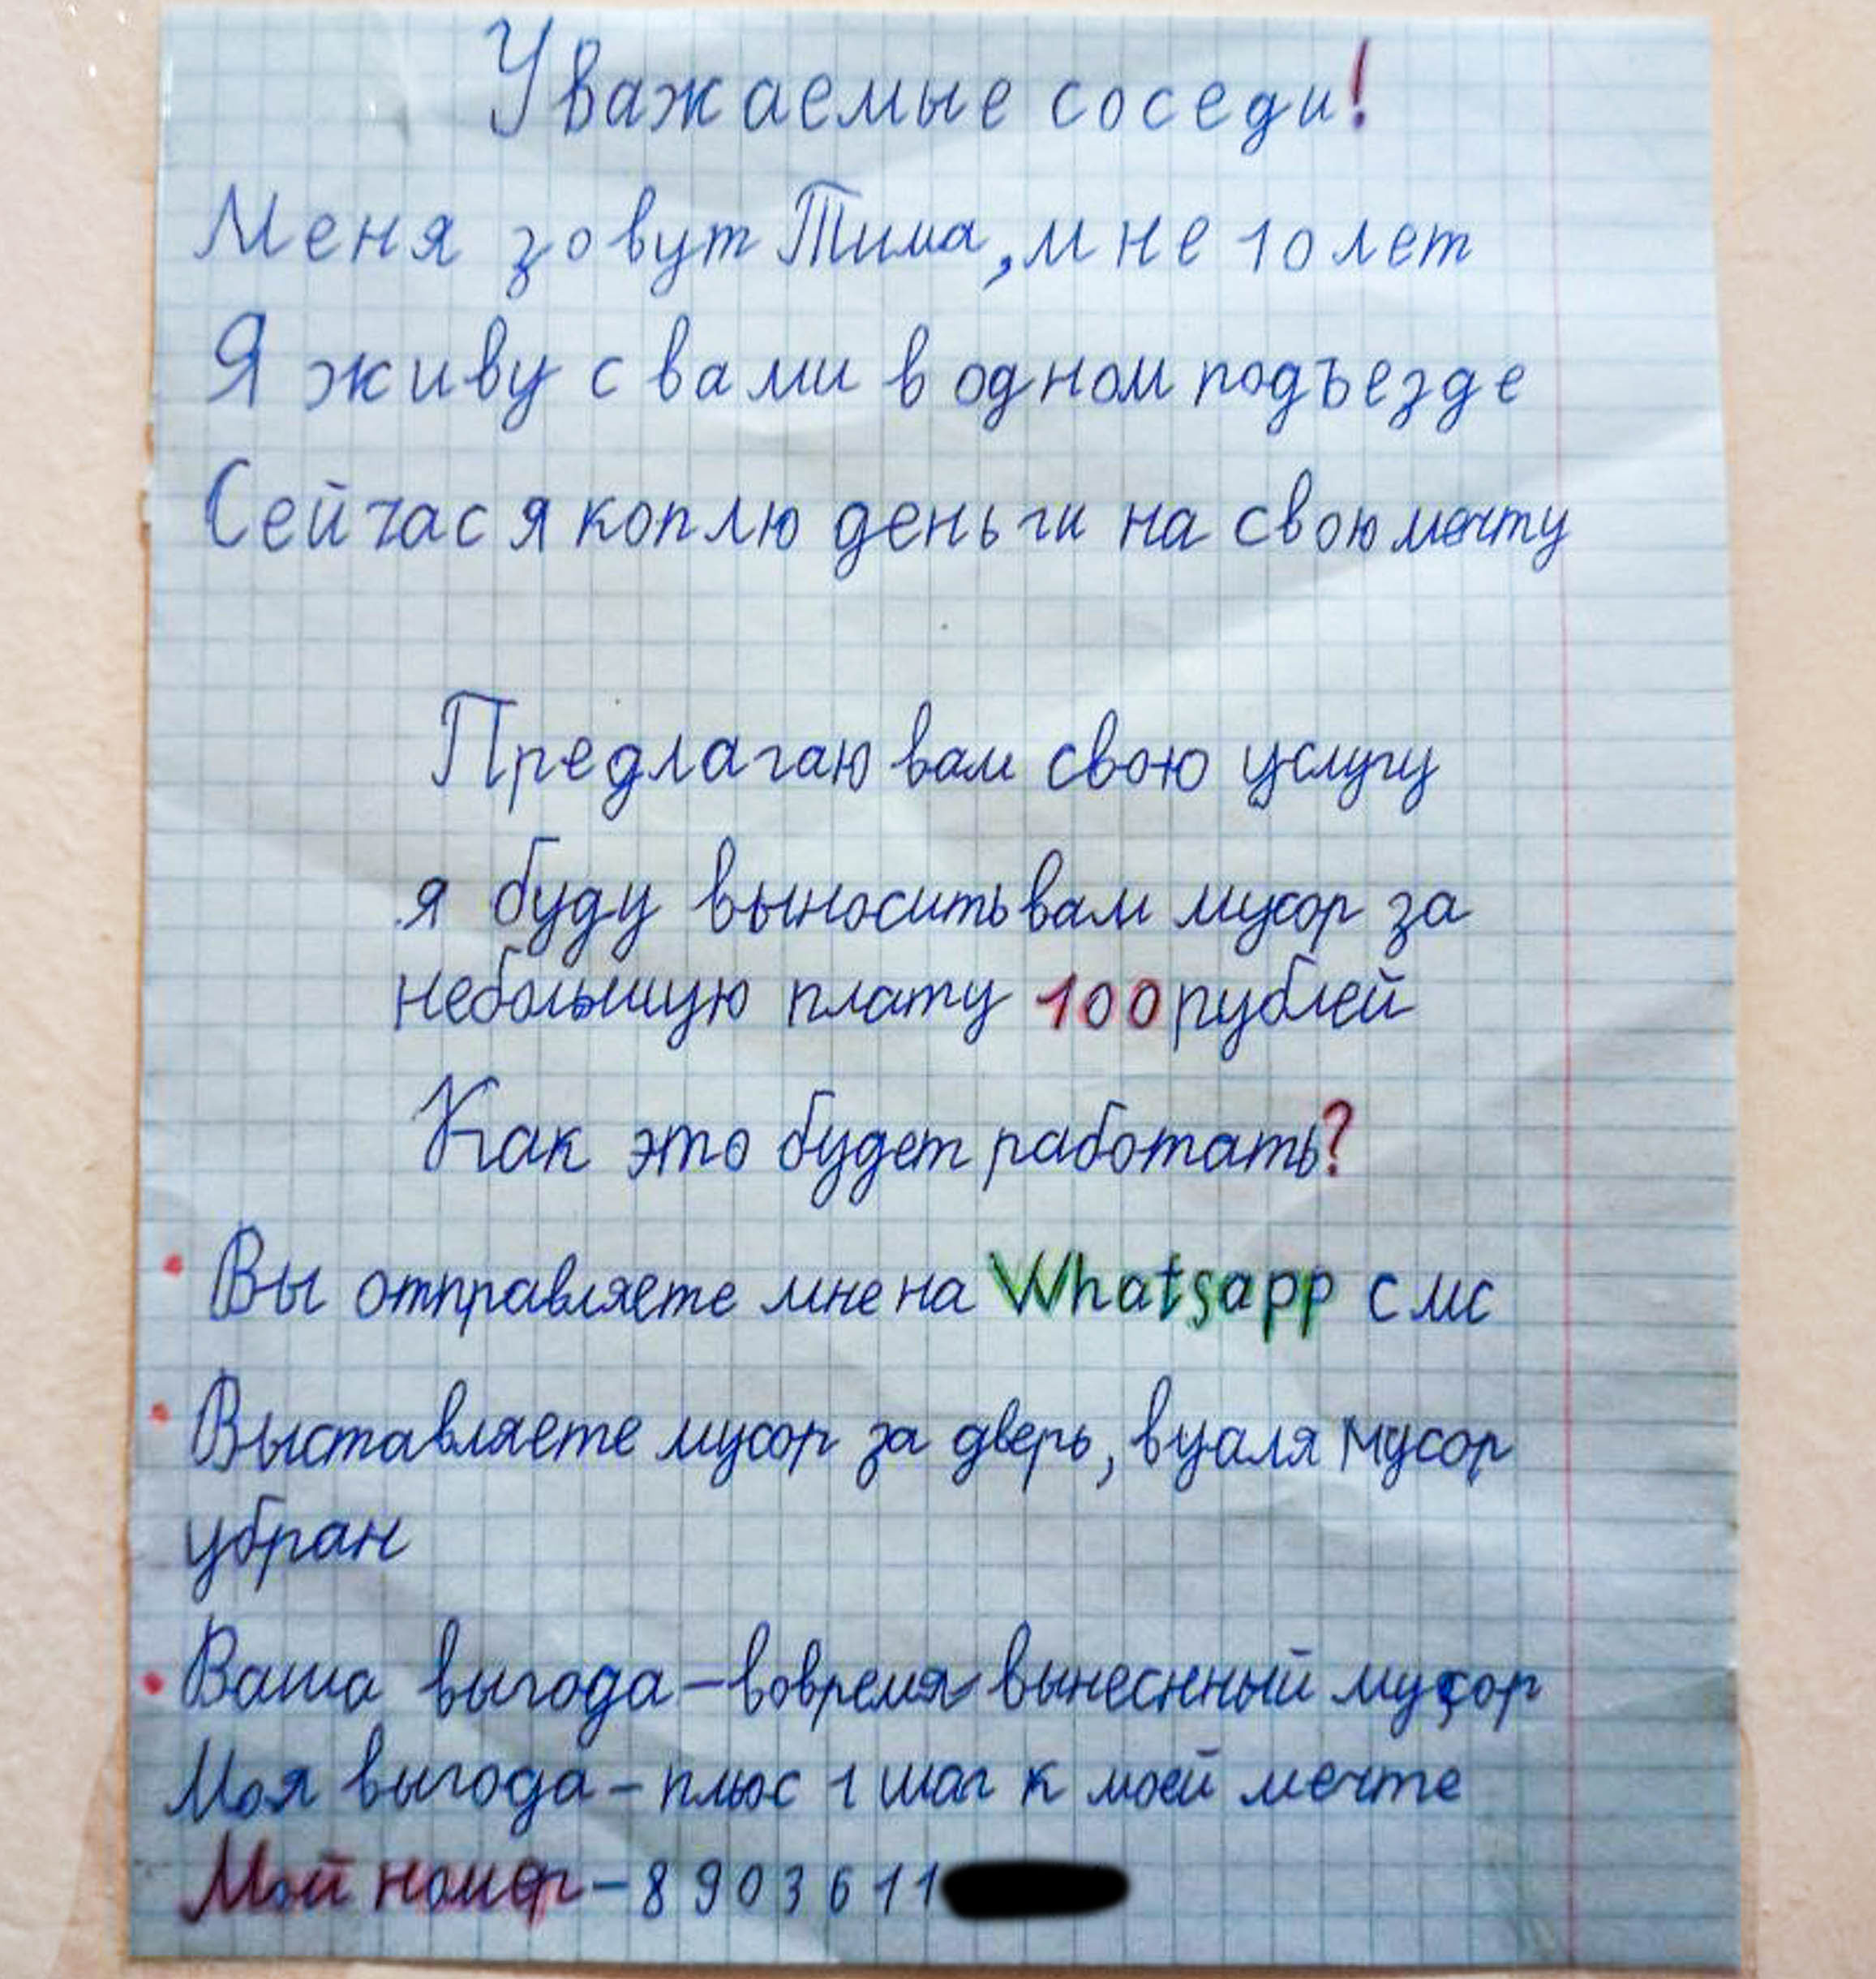 Уважаемые соседи!
Меня зовут Тима, мне 10 лет
Я живу с вами в одном подъезде
Сейчас я коплю деньги на свою мечту
Предлагаю вам свою услугу
я буду выносить вам мусор за
небольшую плату 100 рублей
Как это будет работать?
• Вы отправляете мне на Whatsapp смс
• Выставляете мусор за дверь, вуаля мусор
убран
• Ваша выгода – вовремя вынеснный мусор
Моя выгода – плюс 1 шаг к моей мечте
Мой номер – 8903611